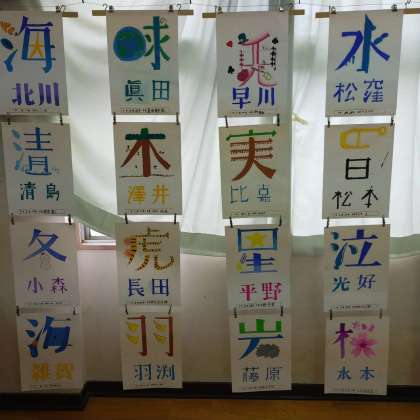 海
北川
球
眞田
早川
水
松窪
清
清島
木
澤井
実
比嘉
日
松本
冬
小森
虎
長田
星
平野
泣
光好
海
雑賀
羽
羽渕
岩
藤原
桜
水本